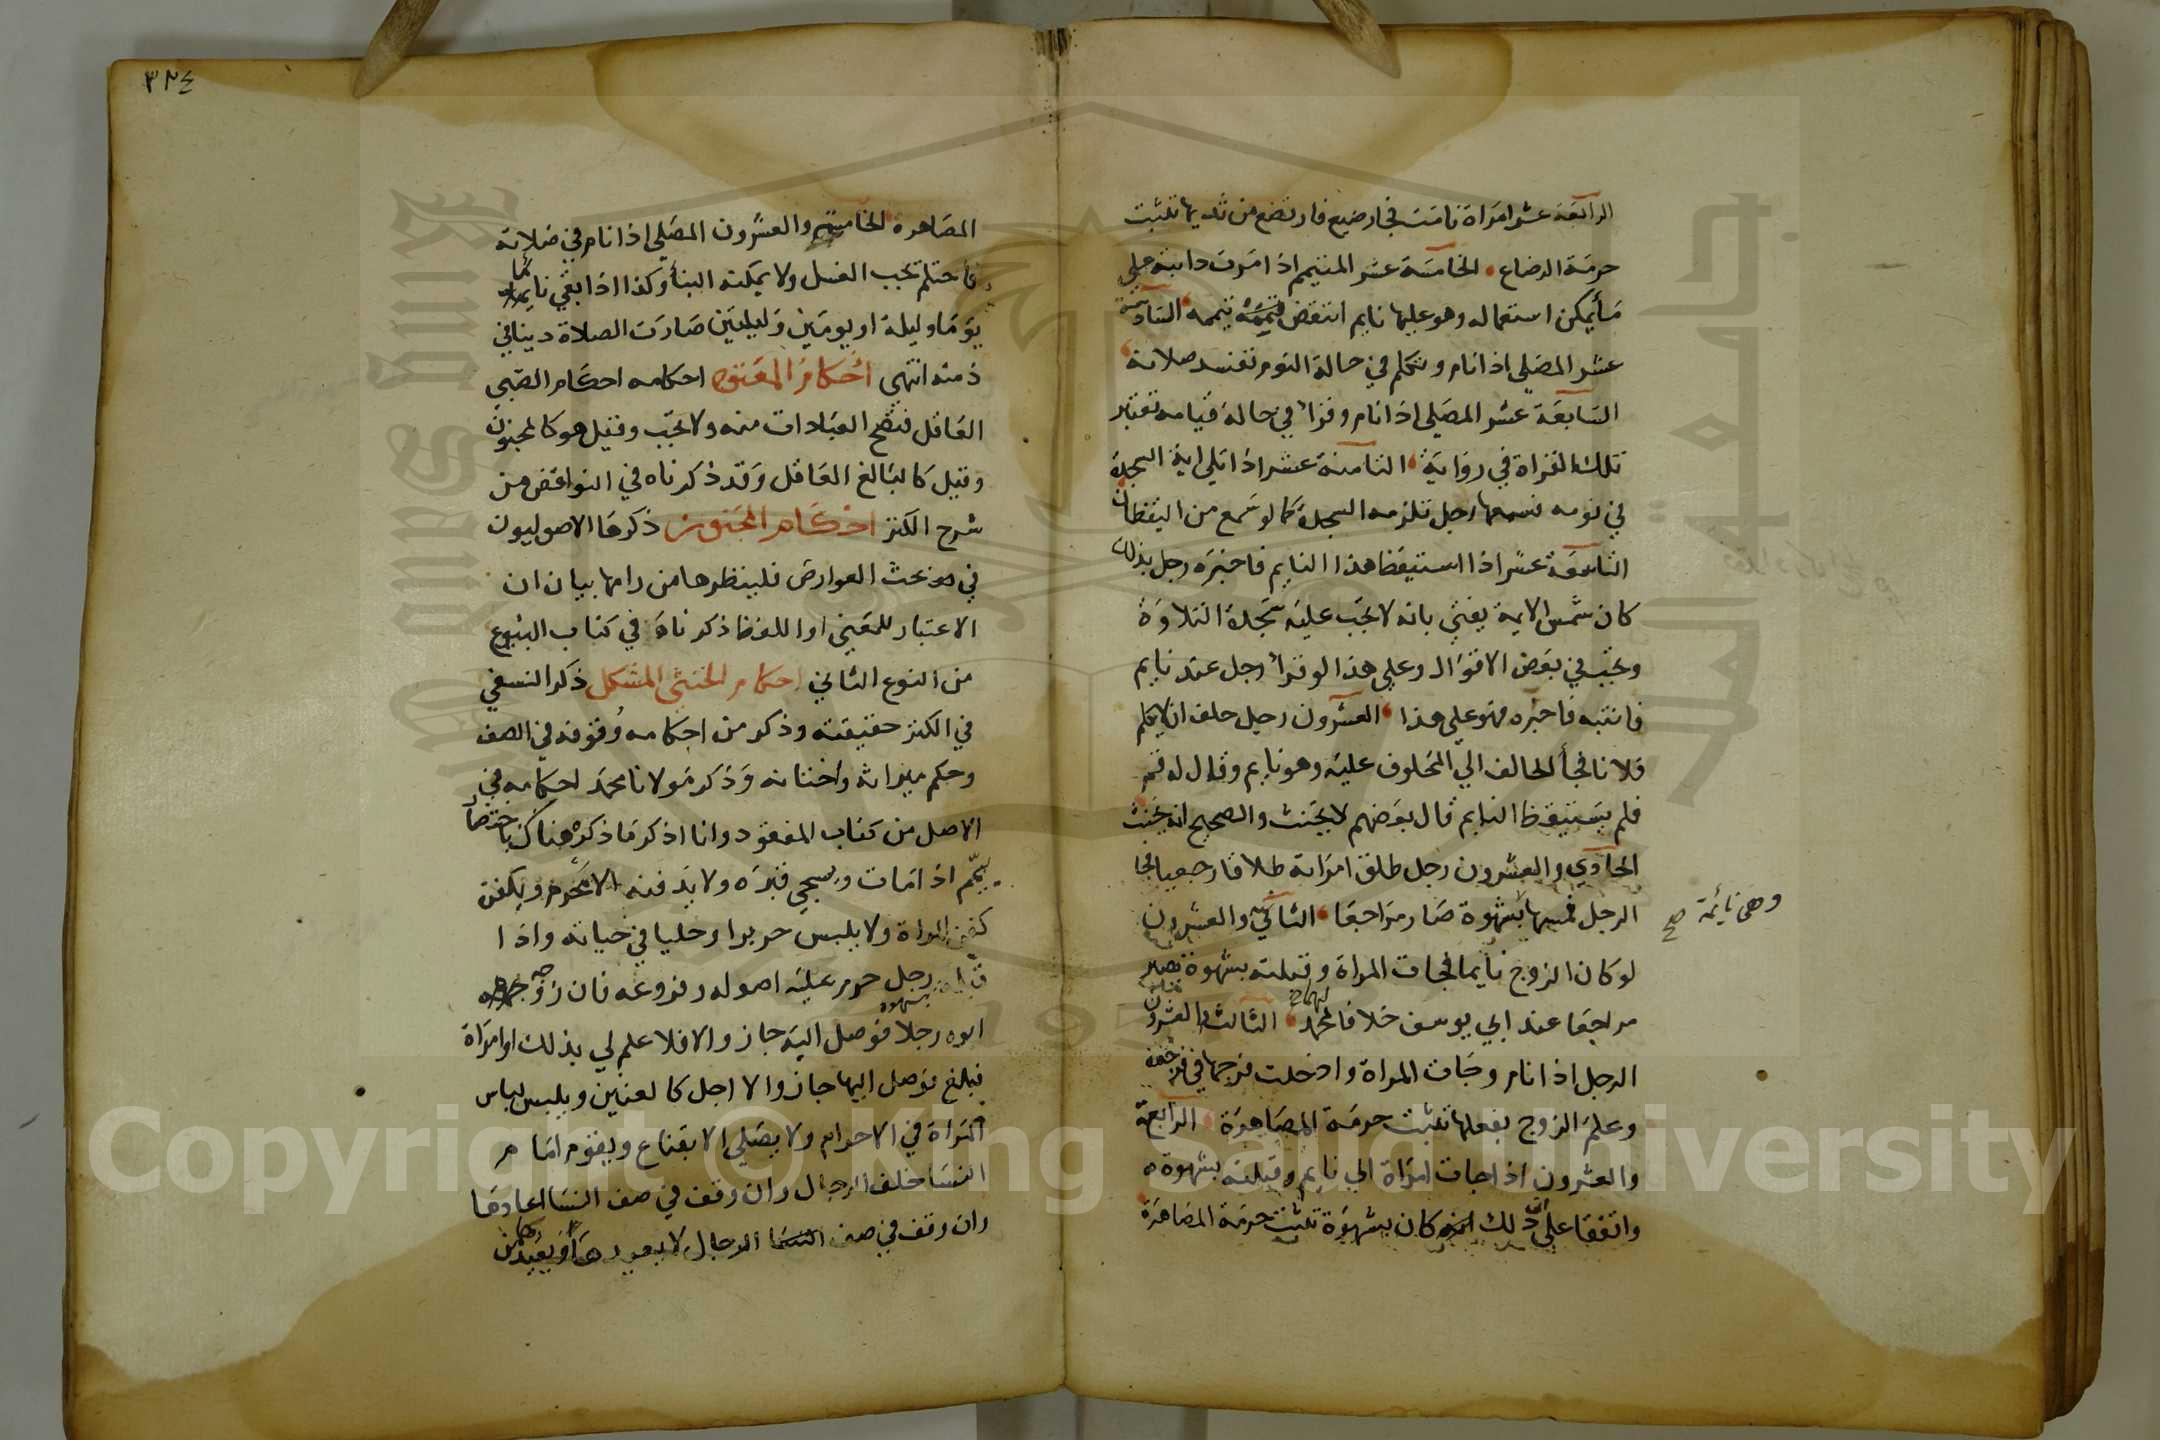 الرابعة عشر امراة نامت فجا رضيع فارتضع من ثديها تثبت
حرمة الرضاع الخامسة عشر المتيمم اذا مرت دابته على
ما يمكن استعماله وهو عليها نايم انتقض تيممه السادسة
عشر المصلي اذا نام وتكلم في حالة النوم تفسد صلاته
السابعة عشر المصلي اذا نام وقرا في حالة قيامه تعتبر
تلك القراة في رواية الثامنة عشر اذا تلى اية السجدة
في نومه فسمعها رجل تلزمه السجدة كما لو سمع من اليقظان
التاسعة عشر اذا استيقظ هذا النايم فاخبره رجل بذلك
كان شمس الايمة يفتي بانه لا يجب عليه سجدة التلاوة
وتجب في بعض الاقوال وعلى هذا لو قرا رجل عند نايم
فانتبه فاخبره فهو على هذا العشرون رجل حلف ان لا يكلم
فلانا فجا الحالف الي المحلوف عليه وهو نايم وقال له قم
فلم يستيقظ النايم قال بعضهم لا يحنث والصحيح انه يحنث
الحادي والعشرون رجل طلق امراته طلاقا رجعيا فجا
الرجل فمسها بشهوة صار مراجعا الثاني والعشرون
وهى نائمة صح
لو كان الزوج نايما فجات المراة وقبلته بشهوة تصير
مراجعا عند ابي يوسف خلافا لمحمد الثالث والعشرون
الرجل اذا نام وجات المراة وادخلت فرجها في فرجه
وعلم الزوج بفعلها تثبت حرمة المصاهرة الرابعة
والعشرون اذا جات امراة الي نايم وقبلته بشهوة
واتفقا على ذلك انه كان بشهوة تثبت حرمة المصاهرة
٣٢٤
المصاهرة الخامسة والعشرون المصلي اذا نام في صلاته
فاحتلم تجب الغسل ولا يمكنه البنا وكذا اذا بقي نايما
يوما وليلة او يومين وليلتين صارت الصلاة دينا في
ذمته انتهى احكام المعتوه احكامه احكام الصبي
العاقل فتصح العبادات منه ولا تجب وقيل هو كالمجنون
وقيل كالبالغ العاقل وقد ذكرناه في النواقض من
شرح الكنز احكام المجنون ذكرها الاصوليون
في بحث العوارض فلينظرها من رامها بيان ان
الاعتبار للمعنى او اللفظ ذكرناه في كتاب البيوع
من النوع الثاني احكام الخنثى المشكل ذكر النسفي
في الكنز حقيقته وذكر من احكامه وقوفه في الصف
وحكم ميراثه واختتانه وذكر مولانا محمد احكامه في
الاصل من كتاب المفقود وانا اذكر ما ذكره هناك باختصار
ييمم اذا مات ويسجى قبره ولا يدفنه الا محرم ويكفن
كفن المراة ولا يلبس حريرا وحليا في حياته واذا
قبله رجل بشهوة حرم عليه اصوله وفروعه فان زوجه
ابوه رجلا فوصل اليه جاز والا فلا علم لي بذلك او امراة
فبلغ فوصل اليها جاز والا اجل كالعنين ويلبس لباس
المراة في الاحرام ولا يصلي الا بقناع ويقوم امام
النسا خلف الرجال وان وقف في صف النسا اعادها
وان وقف في صف الرجال لا يعيدها ويعيد من
Copyright © King Saud University
King Saud University
جامعة الملك سعود
1957